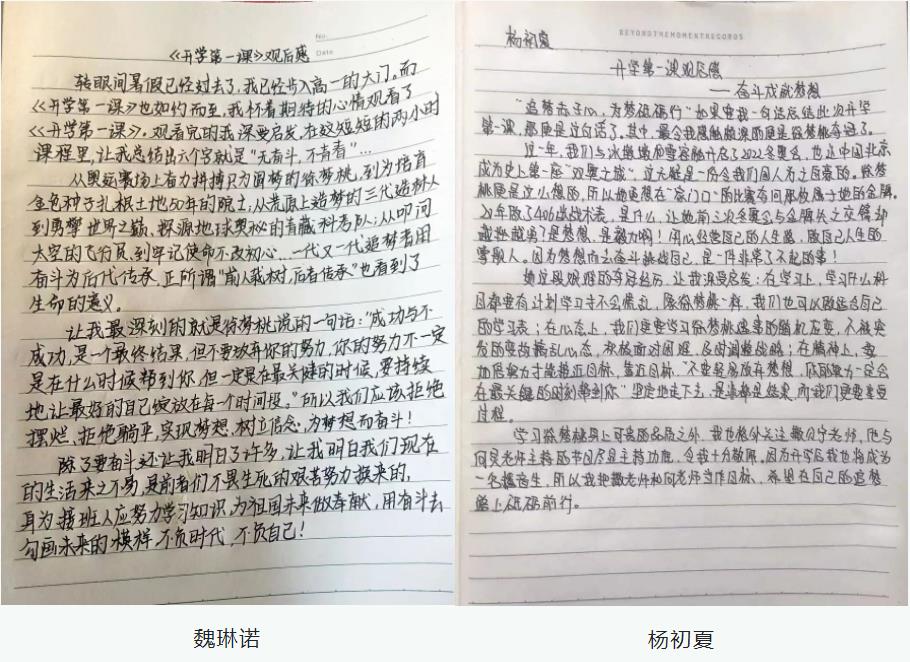 No.
Date
《开学第一课》观后感
转眼间暑假已经过去了,我已经步入高一的大门。而
《开学第一课》也如约而至,我怀着期待的心情观看了
《开学第一课》。观看完的我深受启发,在这短短的两小时
课程里,让我总结出六个字就是"无奋斗,不青春"…
从奥运赛场上奋力拼搏只为圆梦的徐梦桃,到为培育
金色种子扎根土地50年的院士;从荒原上追梦的三代造林人
到勇攀世界之巅,探源地球奥秘的青藏科考队;从叩问
太空的飞行员,到牢记使命不改初心…一代又一代追梦者用
奋斗为后代传承,正所谓"前人栽树,后者传承"也看到了
生命的意义。
让我最深刻的就是徐梦桃说的一句话:"成功与不
成功,是一个最终结果,但不要放弃你的努力,你的努力不一定
是在什么时候帮到你,但一定是在最关健的时候,要持续
地让最好的自己绽放在每一个时间段。"所以我们应该拒绝
摆烂,拒绝躺平,实现梦想,树立信念,为梦想而奋斗!
除了要奋斗还让我明白了许多,让我明白我们现在
的生活来之不易,是前者们不畏生死的艰苦努力换来的,
身为接班人应努力学习知识,为祖国未来做奉献,用奋斗去
勾画未来的模样,不负时代,不负自己!
魏琳诺
BEYONDTHEMOMENTRECORDS
杨初夏
开学第一课观后感
——奋斗成就梦想
"追梦赤子心,为梦砥砺行"如果要我一句话总结此次开学
第一课,那便是这句话了。其中,最令我感触颇深的便是徐梦桃夺冠了。
过一年,我们与冰墩墩和雪容融开启了2022冬奥会,也让中国北京
成为史上第一座"双奥之城"。这无疑是一份令我们国人为之自豪的。徐梦
桃便是这么想的,所以她更想在"家门口"的比赛夺回那枚属于她的金牌。
是什么,让她前三次冬奥会与金牌失之交臂却
越挫越勇?是梦想,是毅力啊!用心经营自己的人生路,做自己人生的
掌舵人。因为梦想而去奋斗挑战自己,是一件非常了不起的事!
她这段艰难的夺冠经历,让我深受启发:在学习上,学习什么科
目都要有计划学习才不会慌乱,像徐梦桃一样,我们也可以做适合自己
的学习表;在心态上,我们更要学习徐梦桃遇事的随机应变,不被突
发的变故搞乱心态,积极面对困难,及时调整战略;在精神上,更
加倍努力才能接近目标,靠近目标,"不要轻易放弃梦想,你的努力一定会
在最关键的时刻帮到你"坚定地走下去,
过程。
学习徐梦桃身上可贵的品质之外,我也格外关注撒贝宁老师,他与
何炅老师主持的节目尽显主持功底,令我十分敬佩。因为开学后我也将成为
一名播音生,所以我把撒老师和何老师当作目标,希望在自己的追梦
路上砥砺前行。
杨初夏